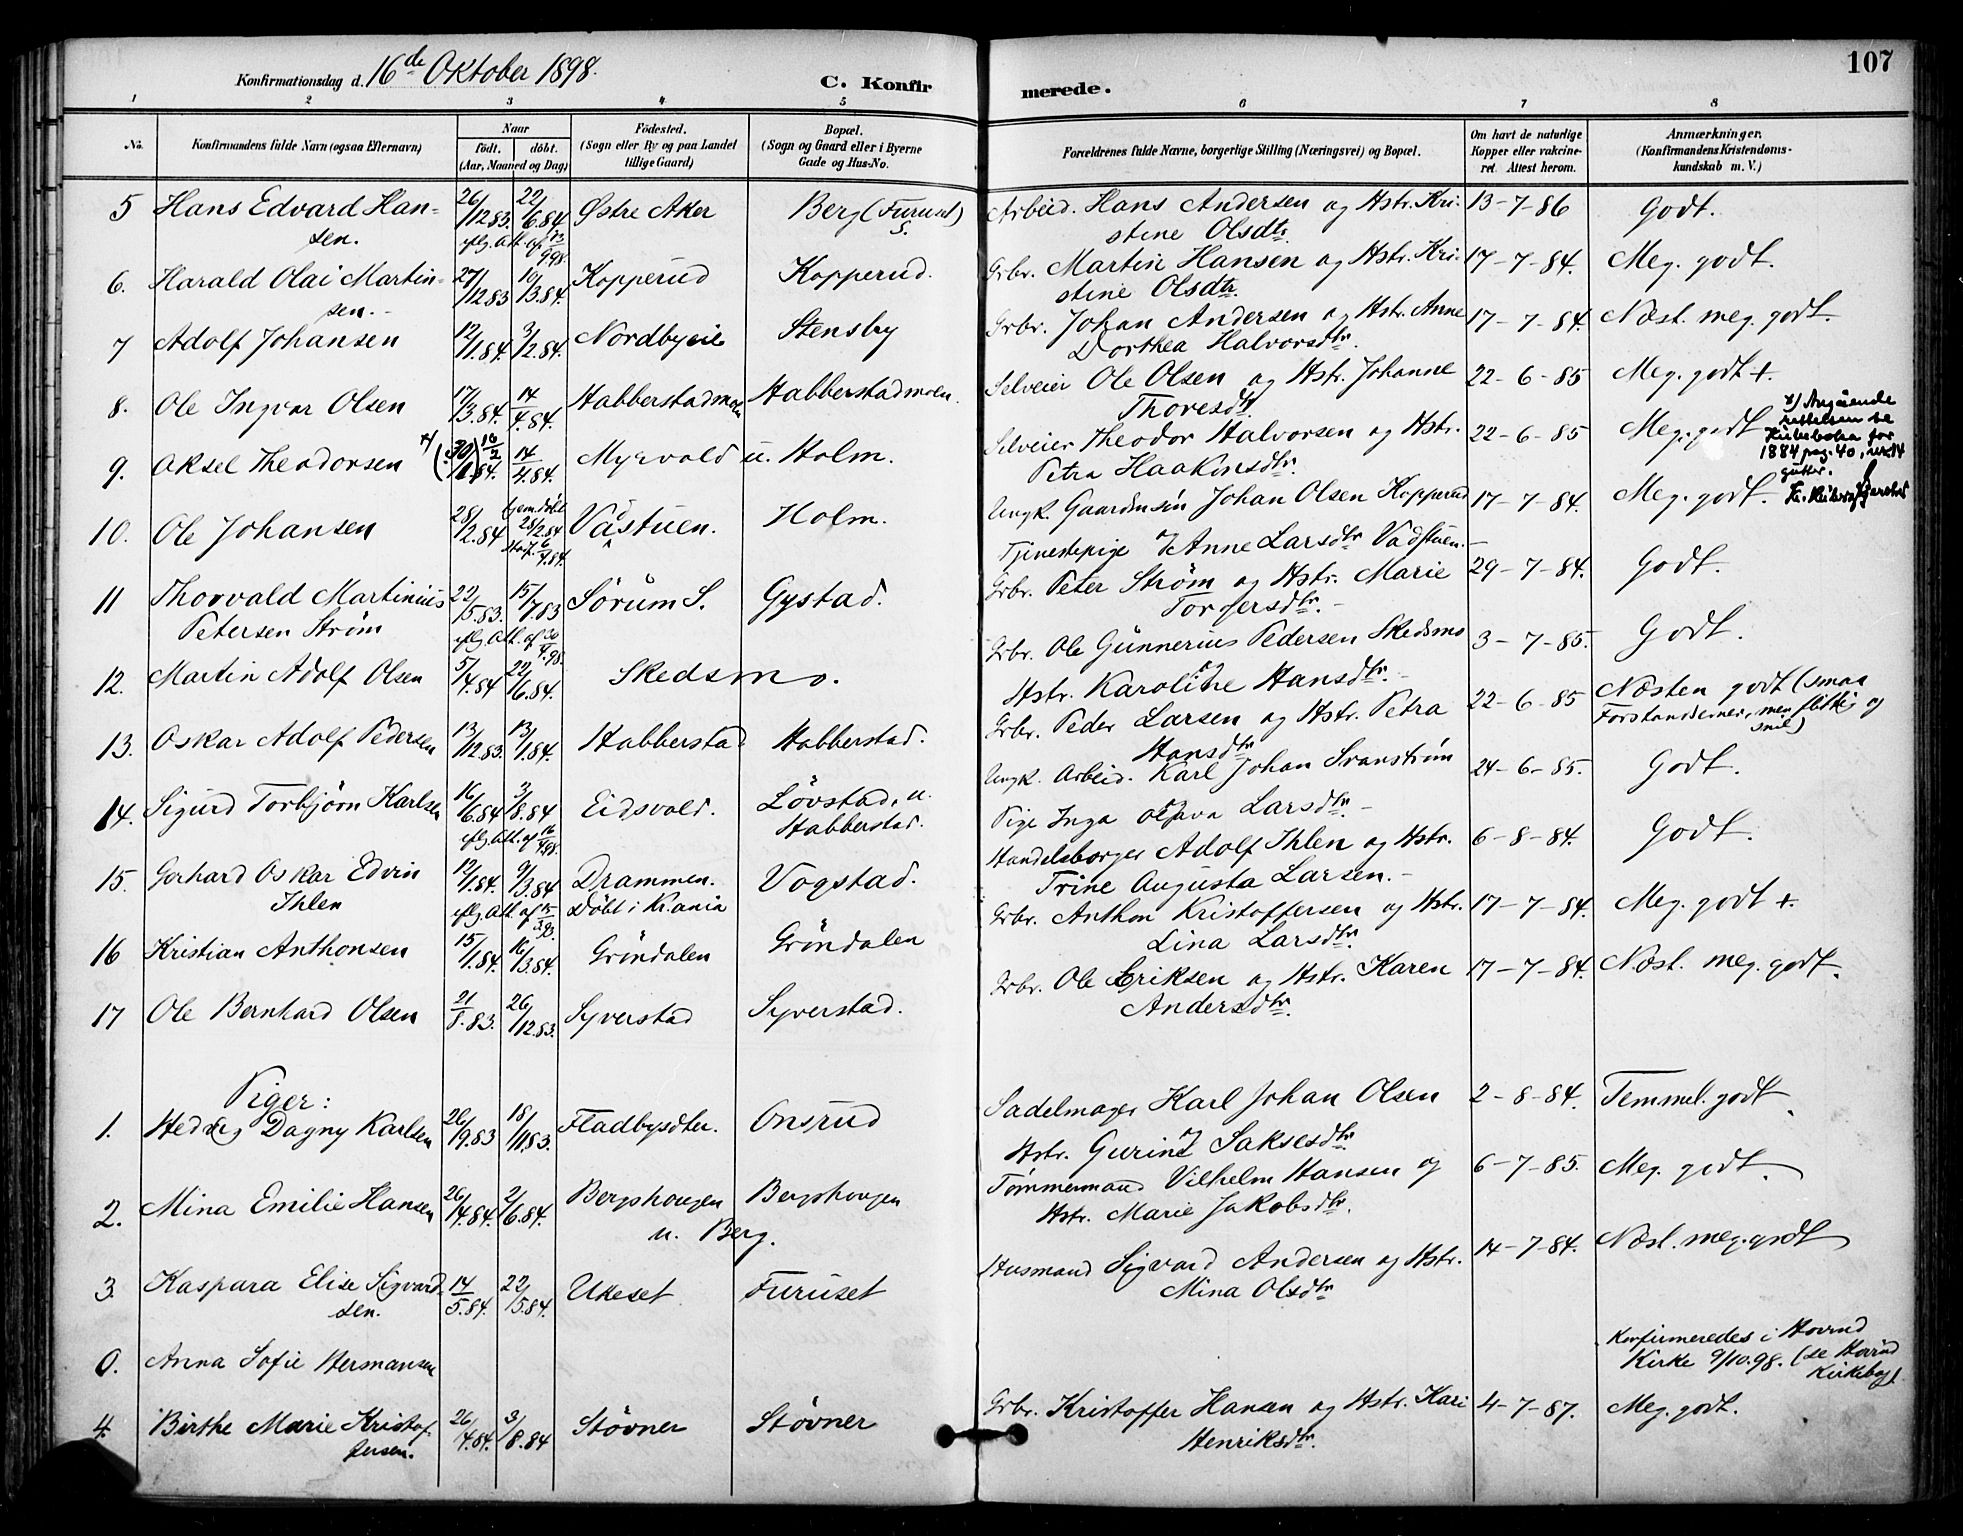 Konfirmationsdag d. 16de Oktober 1898.
C. Konfir
merede.
107
1 2 3 4 5 6 7 8
No.
Konfirmandens fulde Navn (ogsaa Efternavn)
Naar
födt. döbt.
(Aar, Maaned og Dag)
Födested.
(Sogn eller By og paa Landet
tillige Gaard)
Bopæl.
(Sogn og Gaard eller i Byerne
Gade og Hus-No.
Forældrenes fulde Navne, borgerlige Stilling (Næringsvei) og Bopæl.
Om havt de naturlige
Kopper eller vakcine-
ret. Attest herom.
Anmærkninger.
(Konfirmandens Kristendoms-
kundskab m. V.)
5 Hans Edvard Han- 26/12.83. 22/6.84 Østre Aker Berg (Furuset S.) Arbeid. Hans Andersen og Hstr. Kri- 13-7-86 Godt.
sen. eflg. Att. af 13/9 98. stine Olsdtr.
6. Harald Olai Martin- 27/12.83 10/3.84. Kopperud Kopperud. Grbr. Martin Hansen og Hstr. Kri- 17-7-84. Meg. godt.
sen. stine Olsdtr.
7 Adolf Johansen 12/1.84. 3/2.84. Nordbyeie Stensby Grbr. Johan Andersen og Hstr. Anne 17-7-84. Næst. meg. godt.
Dorthea Halvorsdtr.
8. Ole Ingvar Olsen 17/3.84. 14/4.84. Habberstadmoen Habberstadmoen. Selveier Ole Olsen og Hstr. Johanne 22-6-85 Meg. godt +.
Thoresdtr.
9. Aksel Theodorsen x) (30/1.84.) 16/2 14/4.84. Myrvold u. Holm. Selveier Theodor Halvorsen og Hstr. 22-6-85 Meg. godt
Petra Haakonsdtr.
x) Angående
rettelsen se
kirkeboka for
1884 pag. 40, nr. 14
gutter.
10. Ole Johansen 28/2.84 hjem. døbt 28/2.84 6/4.84. Vadstuen. Holm. Ungk. Gaardmsøn Johan Olsen Kopperud 17-7-84. Meg. godt.
Tjenestepige Anne Larsdtr. Vadstuen.
11 Thorvald Martinius 22/5.83. 15/7.83 Sörum S. Gystad. Grbr. Peter Strøm og Hstr. Marie 29-7-84. Godt.
Petersen Strøm eflg. Att. af 30/4.98. Torgersdtr.
12. Martin Adolf Olsen 5/4.84 22/6.84. Skedsmo. Grbr. Ole Gunnerius Pedersen Skedsmo 3-7-85. Godt.
Hstr. Karoline Hansdtr.
13. Oskar Adolf Pedersen 13/12.83. 13/1.84. Habberstad Habberstad. Grbr. Peder Larsen og Hstr. Petra 22-6-85 Næsten godt (smaa
Hansdtr. Forstandsevner, men flittig og
snil)
14. Sigurd Torbjörn Karlsen 16/6.84 3/8.84 Eidsvold. Lövstad, u. Ungk. Arbeid. Karl Johan Svanström 24-6-85. Godt.
eflg. Att. af 16/4.98. Habberstad. Pige Inga Olava Larsdtr.
15. Gerhard Oskar Edvin 12/1.84. 9/3.84 Drammen. Vogstad. Handelsborger Adolf Ihlen og Hstr. 6-8-84. Godt.
Ihlen eflg. Att. af Döbt i Kr.ania Trine Augusta Larsen.
16 Kristian Anthonsen 15/1.84. 16/3.84. Gröndalen Gröndalen Grbr. Anthon Kristoffersen og Hstr. 17-7-84. Meg. godt +.
Lina Larsdtr.
17 Ole Bernhard Olsen 21/8.83. 26/12.83. Syverstad Syverstad. Grbr. Ole Eriksen og Hstr. Karen 17-7-84. Næst. meg. godt.
Andersdtr.
Piger:
1. Hedvig Dagny Karlsen 26/9.83 18/11.83. Fladbysdter. Onsrud Sadelmager Karl Johan Olsen 2-8-84. Temmel. godt.
Hstr. Gurine Saksesdtr.
2. Mina Emilie Hansen 26/4.84. 2/6.84. Bergshougen Bergshougen Tømmermand Vilhelm Hansen og 6-7-85. Meg. godt.
u. Berg. Hstr. Marie Jakobsdtr.
3. Kaspara Elise Sigvard- 14/5.84. 22/5.84. Ukeset Furuset Husmand Sigvard Andersen og Hstr. 14-7-84. Næst. meg. godt
sen. Mina Olsdtr.
0. Anna Sofie Hermansen Konfirmeredes i Hovind
Kirke 9/10.98. (se Hovind
Kirkebog).
4. Birthe Marie Kristof- 26/4.84. 3/8.84 Stövner Stövner Grbr. Kristoffer Hansen og Hstr. Kari 4-7-87. Meg. godt.
fersen. Henriksdtr.